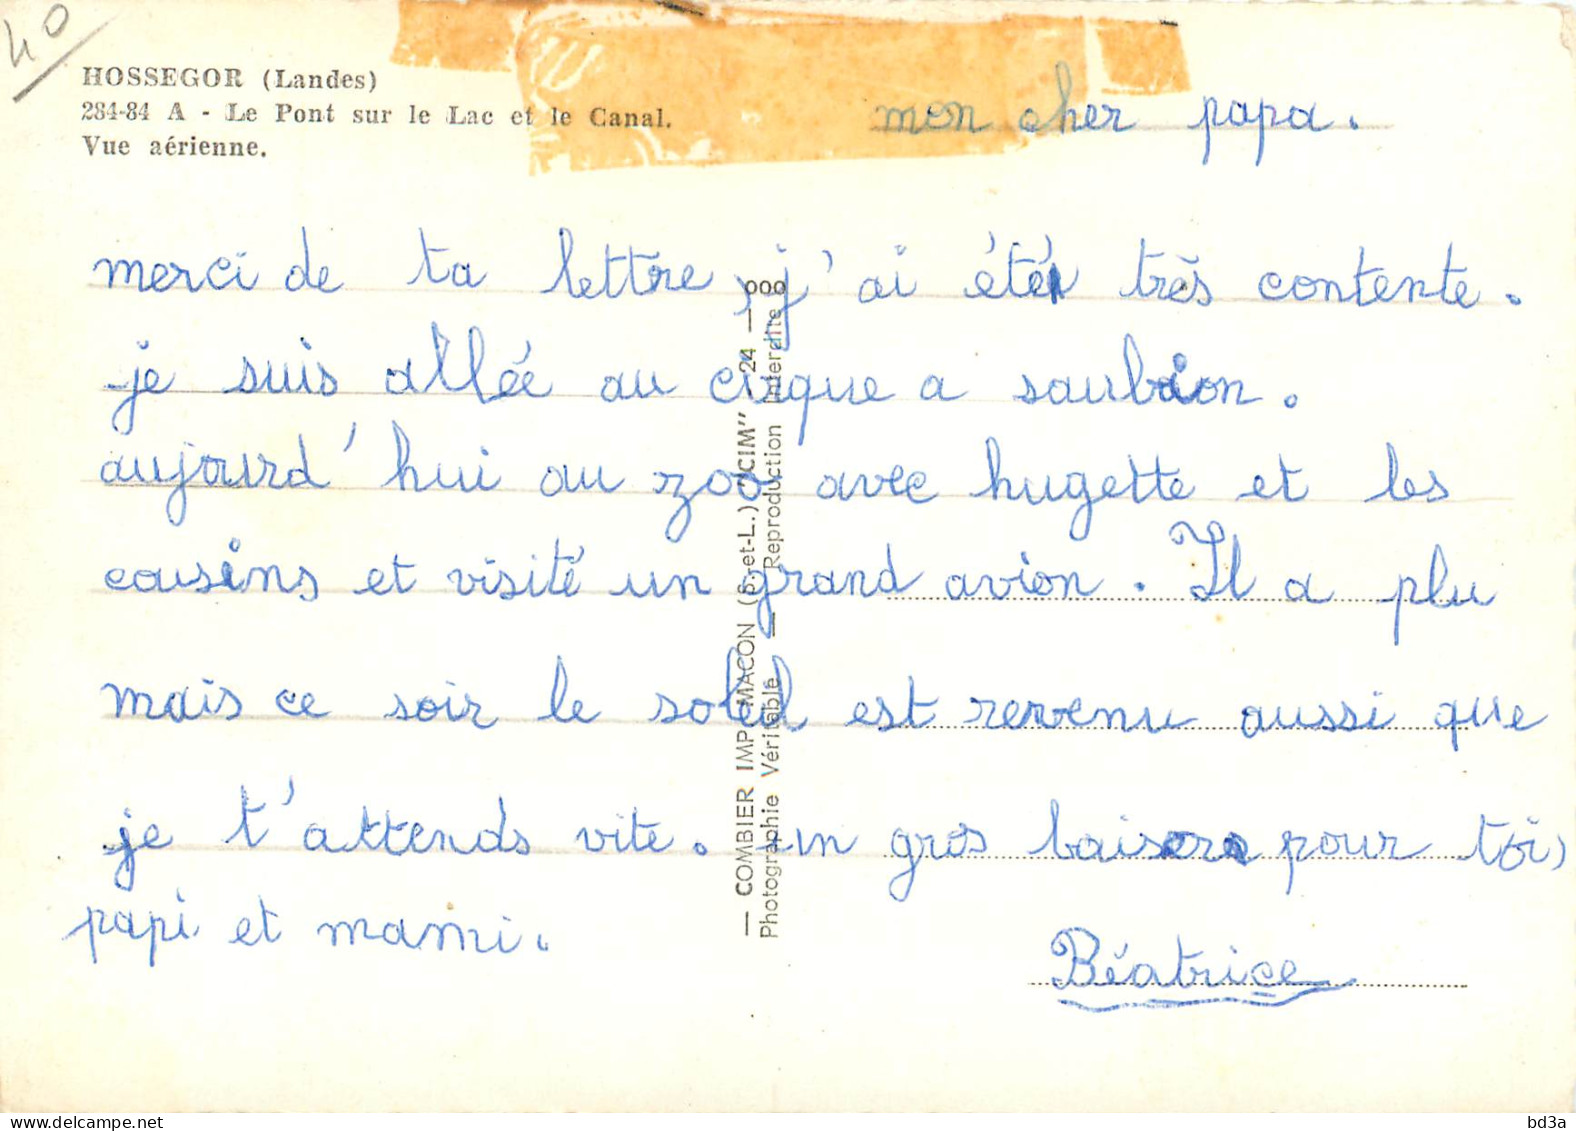 40
HOSSEGOR (Landes)
284-84 A - Le Pont sur le Lac et le Canal.
Vue aérienne.
mon cher papa.
merci de ta lettre, j'ai été très contente.
je suis allée au cirque a saubion.
aujourd'hui au zoo avec hugette et les
cousins et visité un grand avion. Il a plu
mais ce soir le soleil est revenu aussi que
je t'attends vite. un gros baisers pour toi,
papi et mami.
Béatrice
— COMBIER IMP. MACON (S.-et-L.) "CIM" - 24 — 000
Photographie Véritable — Reproduction Interdite
delcampe.net
bd3a